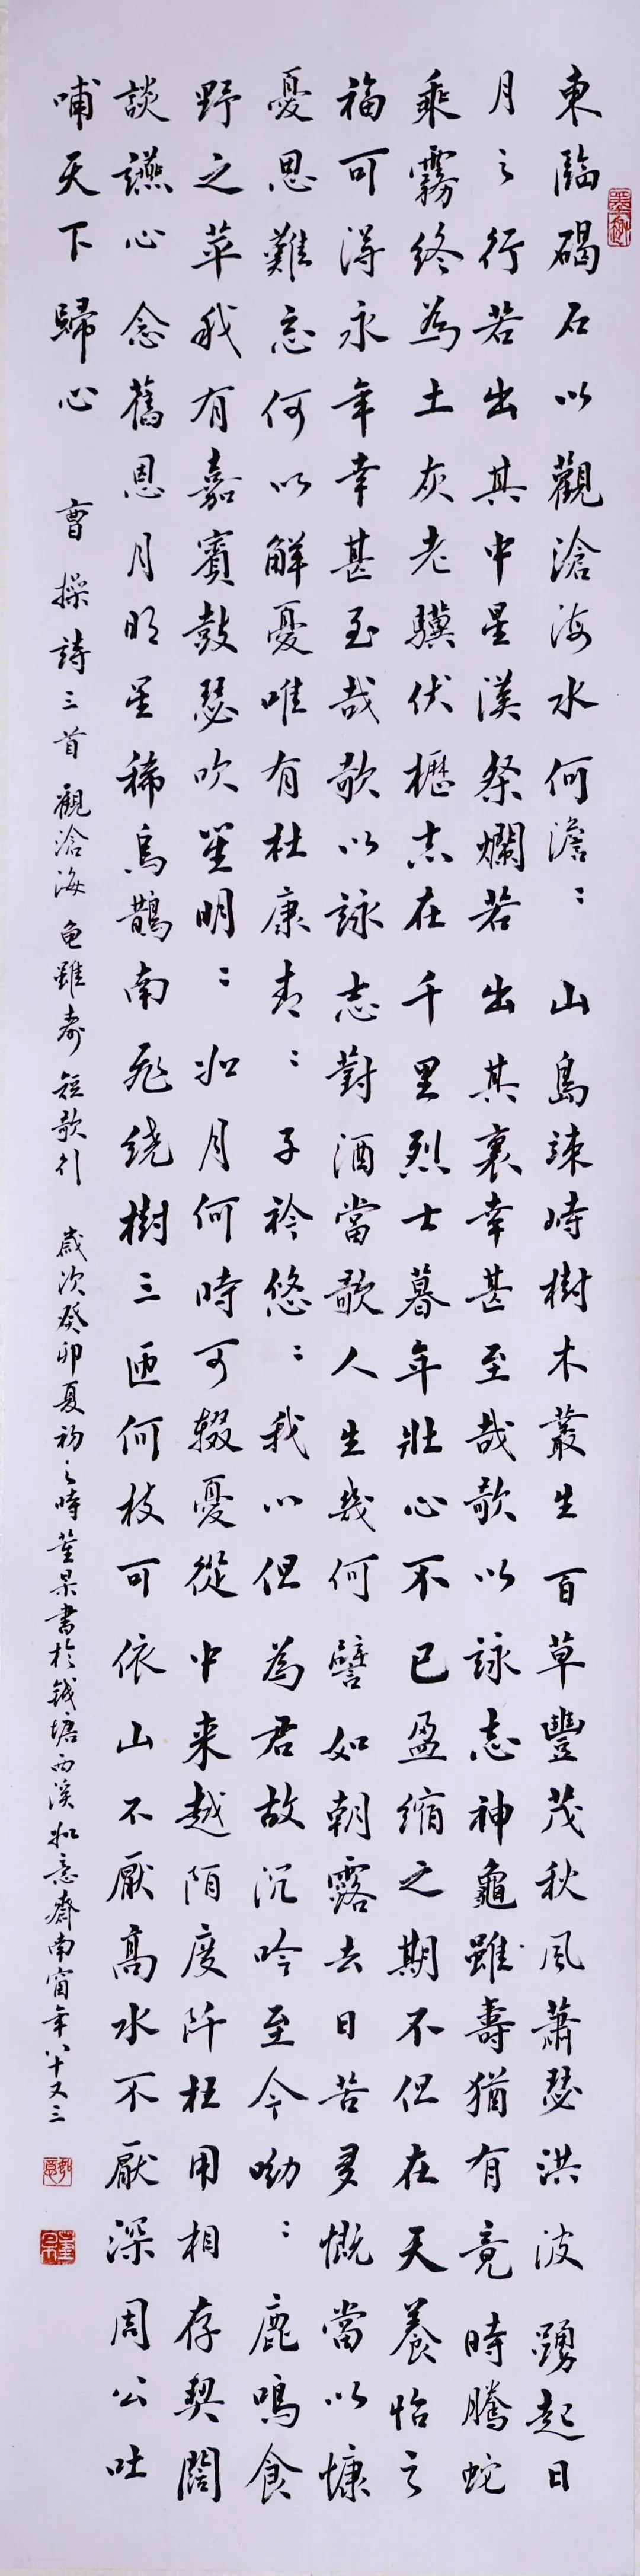 東臨碣石以觀滄海水何澹：山島竦峙樹木叢生百草豐茂秋風蕭瑟洪波踴起日
月之行若出其中星漢粲爛若出其裏幸甚至哉歌以詠志神龜雖壽猶有竟時騰蛇
乘霧終為土灰老驥伏櫪志在千里烈士暮年壯心不已盈縮之期不但在天養怡之
福可得永年幸甚至哉歌以詠志對酒當歌人生幾何譬如朝露去日苦多慨當以慷
憂思難忘何以解憂唯有杜康青：子衿悠：我心但為君故沉吟至今呦：鹿鳴食
野之苹我有嘉賓鼓瑟吹笙明：如月何時可輟憂從中来越陌度阡枉用相存契闊
談讌心念舊恩月明星稀烏鵲南飛繞樹三匝何枝可依山不厭高水不厭深周公吐
哺天下歸心 曹操詩三首 觀滄海 龟雖壽 短歌行 歲次癸卯夏初之時董杲書於錢塘西溪如意齋南窗年八十又三
如意
董杲